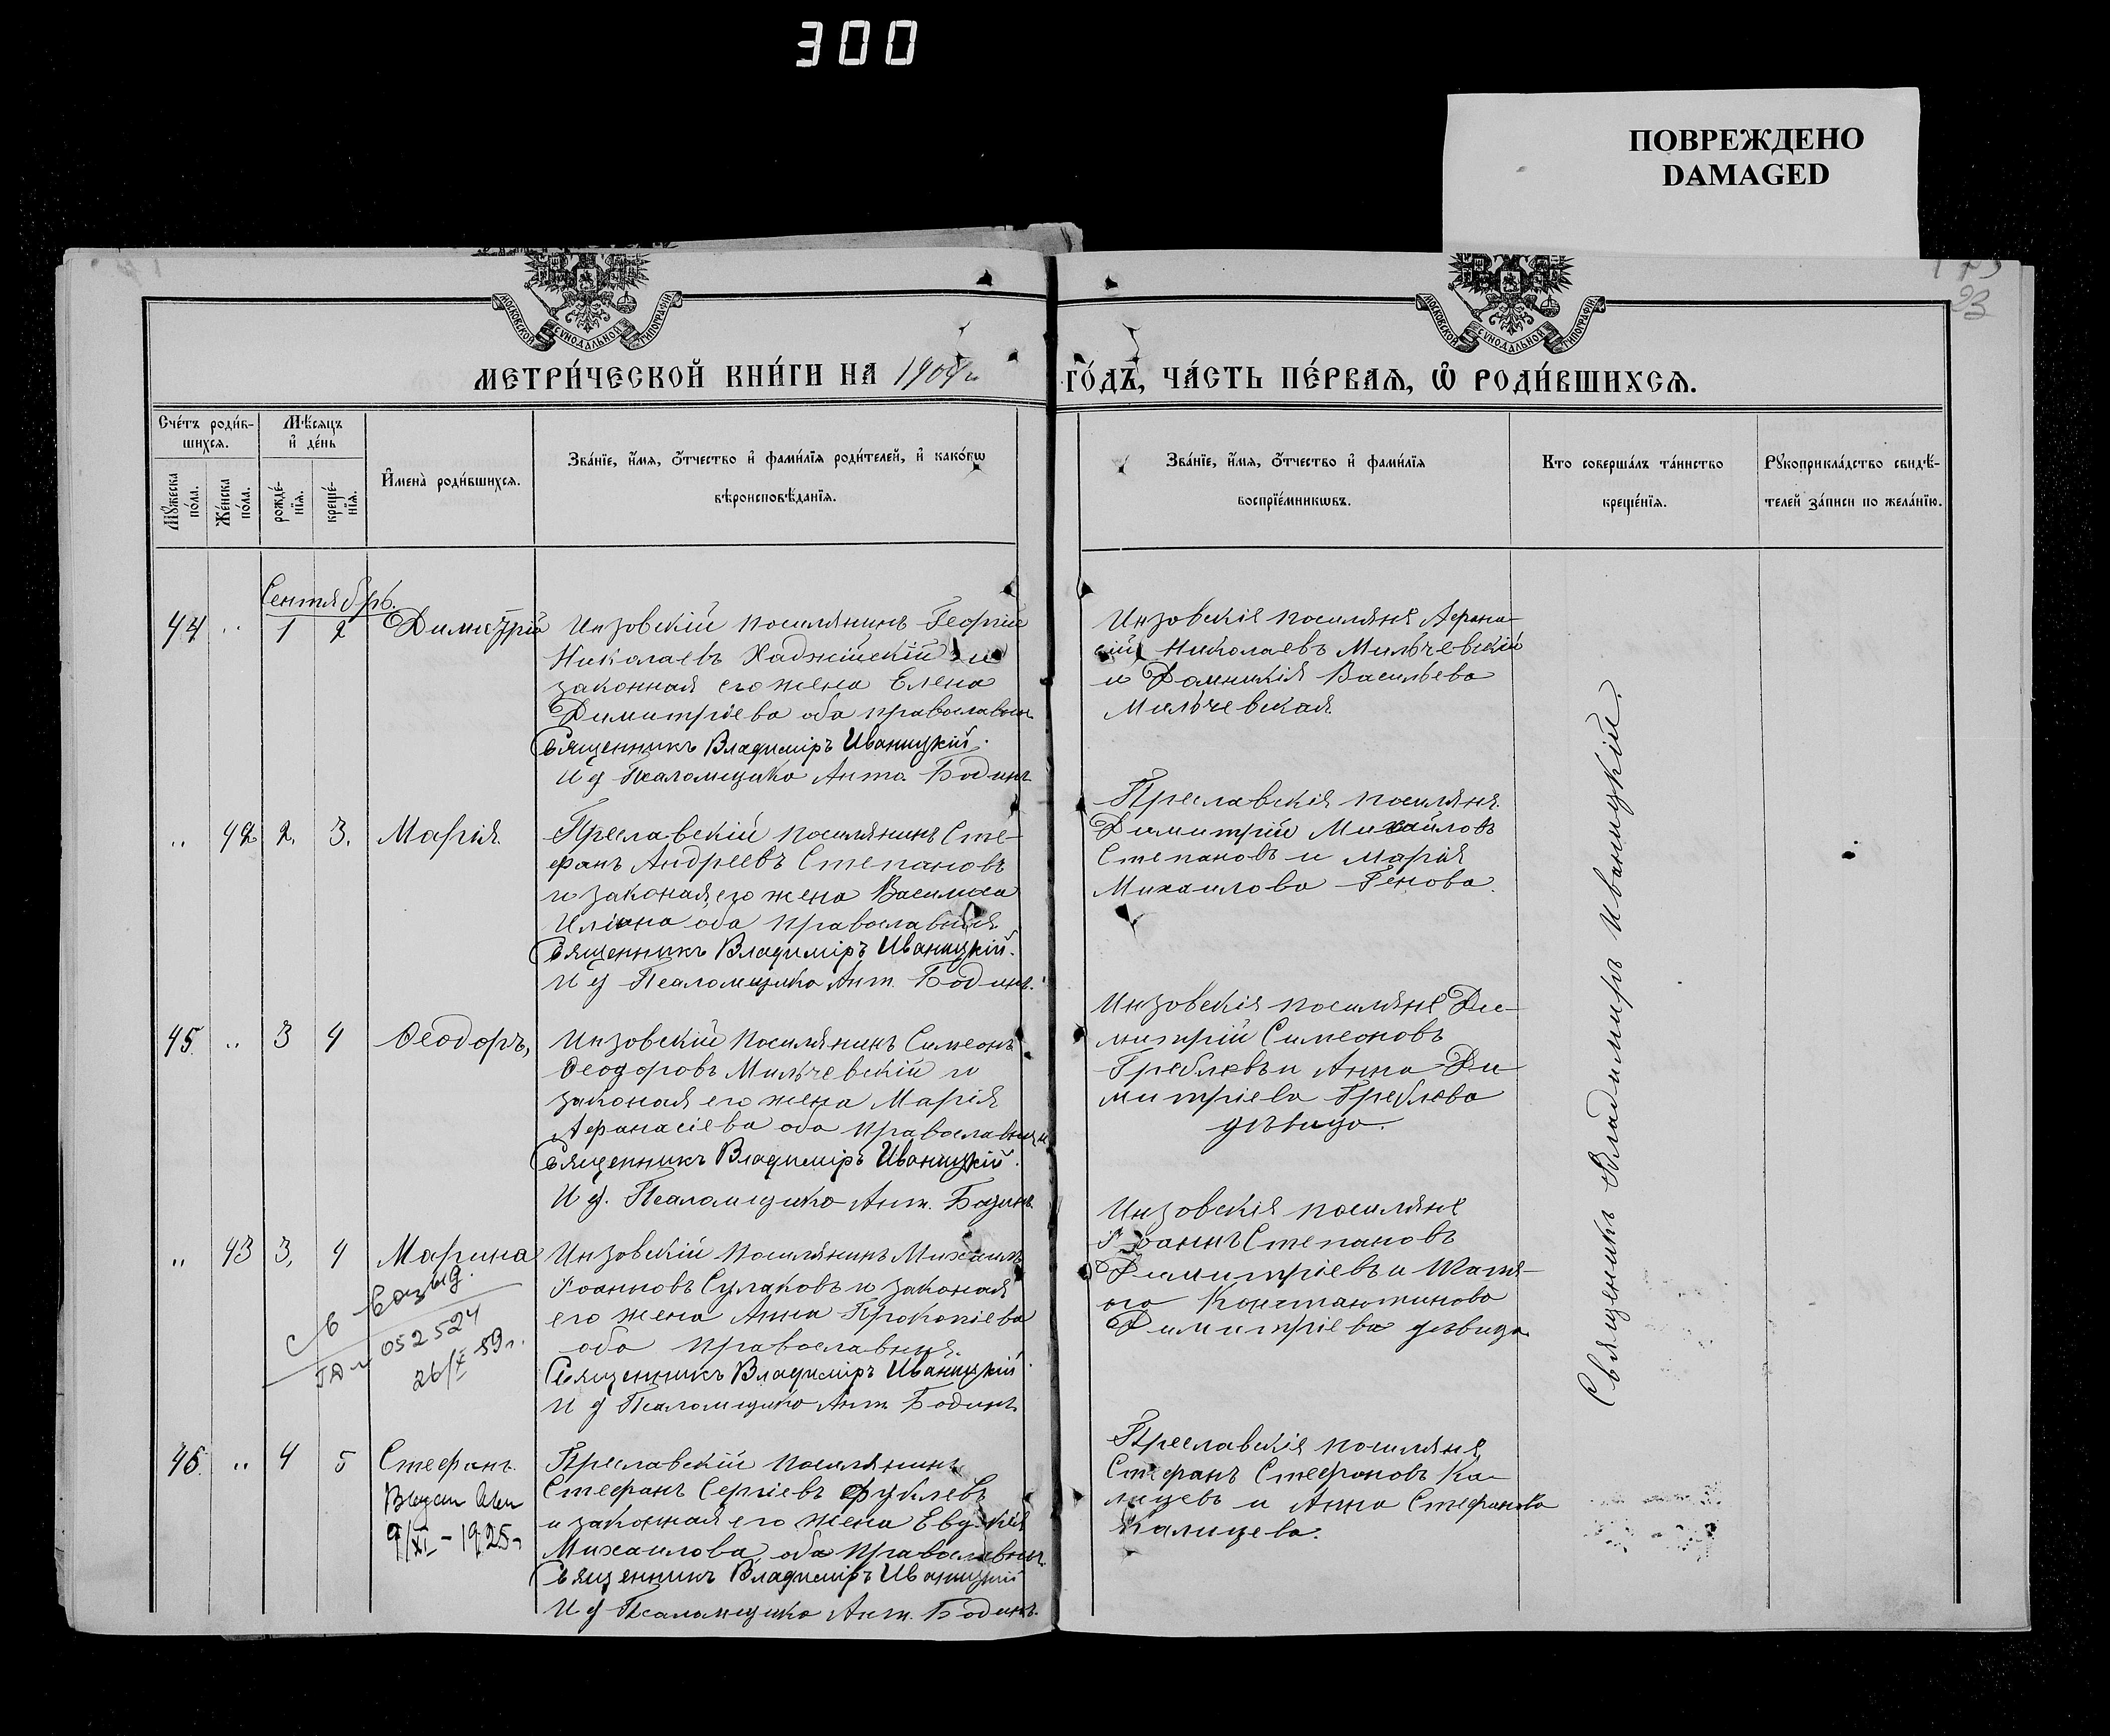 300
ПОВРЕЖДЕНО
DAMAGED
23
МОСКОВСКОЙ СУНОДАЛЬНОЙ ТИПОГРАФІИ
МОСКОВСКОЙ СУНОДАЛЬНОЙ ТИПОГРАФІИ
МЕТРИ́ЧЕСКОЙ КНИ́ГИ НА 1904
ГО́ДЪ, ЧА́СТЬ ПЕ́РВАѦ, Ѿ РОДИ́ВШИХСѦ.
Сче́тъ роди́в-
шихсѧ.
Мѣ́сѧцъ
и҆ де́нь
Мꙋ́жеска
по́ла.
Же́нска
по́ла.
рожде́-
нїѧ.
креще́-
нїѧ.
И҆мена̀ роди́вшихсѧ.
Зва́нїе, и҆́мѧ, ѻ҆́тчество и҆ фами́лїѧ роди́телей, и҆ како́гѡ
вѣроисповѣ́данїѧ.
Зва́нїе, и҆́мѧ, ѻ҆́тчество и҆ фами́лїѧ
воспрїе́мникѡвъ.
Кто соверша́лъ та́инство
креще́нїѧ.
Рꙋкоприкла́дство свидѣ́-
телей за́писи по жела́нїю.
Сентябрь.
44 " 1 2 Димитрій
Инзовскій поселянинъ Георгій
Николаевъ Хаджійскій и
законная его жена Елена
Димитріева оба православны
Священникъ Владиміръ Иваницкій.
И д Псаломщика Ант. Бодинъ
Инзовскія поселяня Афана-
сій Николаевъ Мильчевскій
и Домникія Васильева
Мильчевская.
" 42 2. 3. Марія.
Преславскій поселянинъ Сте-
фанъ Андреевъ Степановъ
и законая его жена Василиса
Иліина оба православныя
Священникъ Владиміръ Иваницкій.
И д Псаломщика Ант. Бодинъ.
Преславскія поселяня
Димитрій Михайловъ
Степановъ и Марія
Михаилова Генова.
45. " 3 4 Ѳеодоръ,
Инзовскій поселянинъ Симеонъ
Ѳеодоровъ Мильчевскій и
законая его жена Марія
Афанасіева оба православныя
Священникъ Владиміръ Иваницкій.
И д. Псаломщика Ант. Бодинъ
Инзовскія поселяне Ди-
митрій Симеоновъ
Греблевъ и Анна Ди-
митріева Греблева
дѣвица.
" 43 3, 4 Марина
св выд.
052524
26/X 59 г.
Инзовскій поселянинъ Михаилъ
Іоанновъ Сулаковъ и законая
его жена Анна Прокопіева
оба православныя.
Священникъ Владиміръ Иваницкій.
И д Псаломщика Ант. Бодинъ
Инзовскія поселяне
Іоаннъ Степановъ
Димитріевъ и
Константинова
Димитріева дѣвица
46. " 4 5 Стефанъ.
9/XI - 1925 г
Преславскій поселянинъ
Стефанъ Сергіевъ
и законная его жена
Михаилова, оба православны.
Священникъ Владиміръ Иваницкій
И д Псаломщика Ант. Бодинъ.
Преславскія поселяня
Стефанъ Стефановъ Ка-
лицевъ и Анна Стефанова
Калицева.
Священникъ Владимиръ Иваницкій.